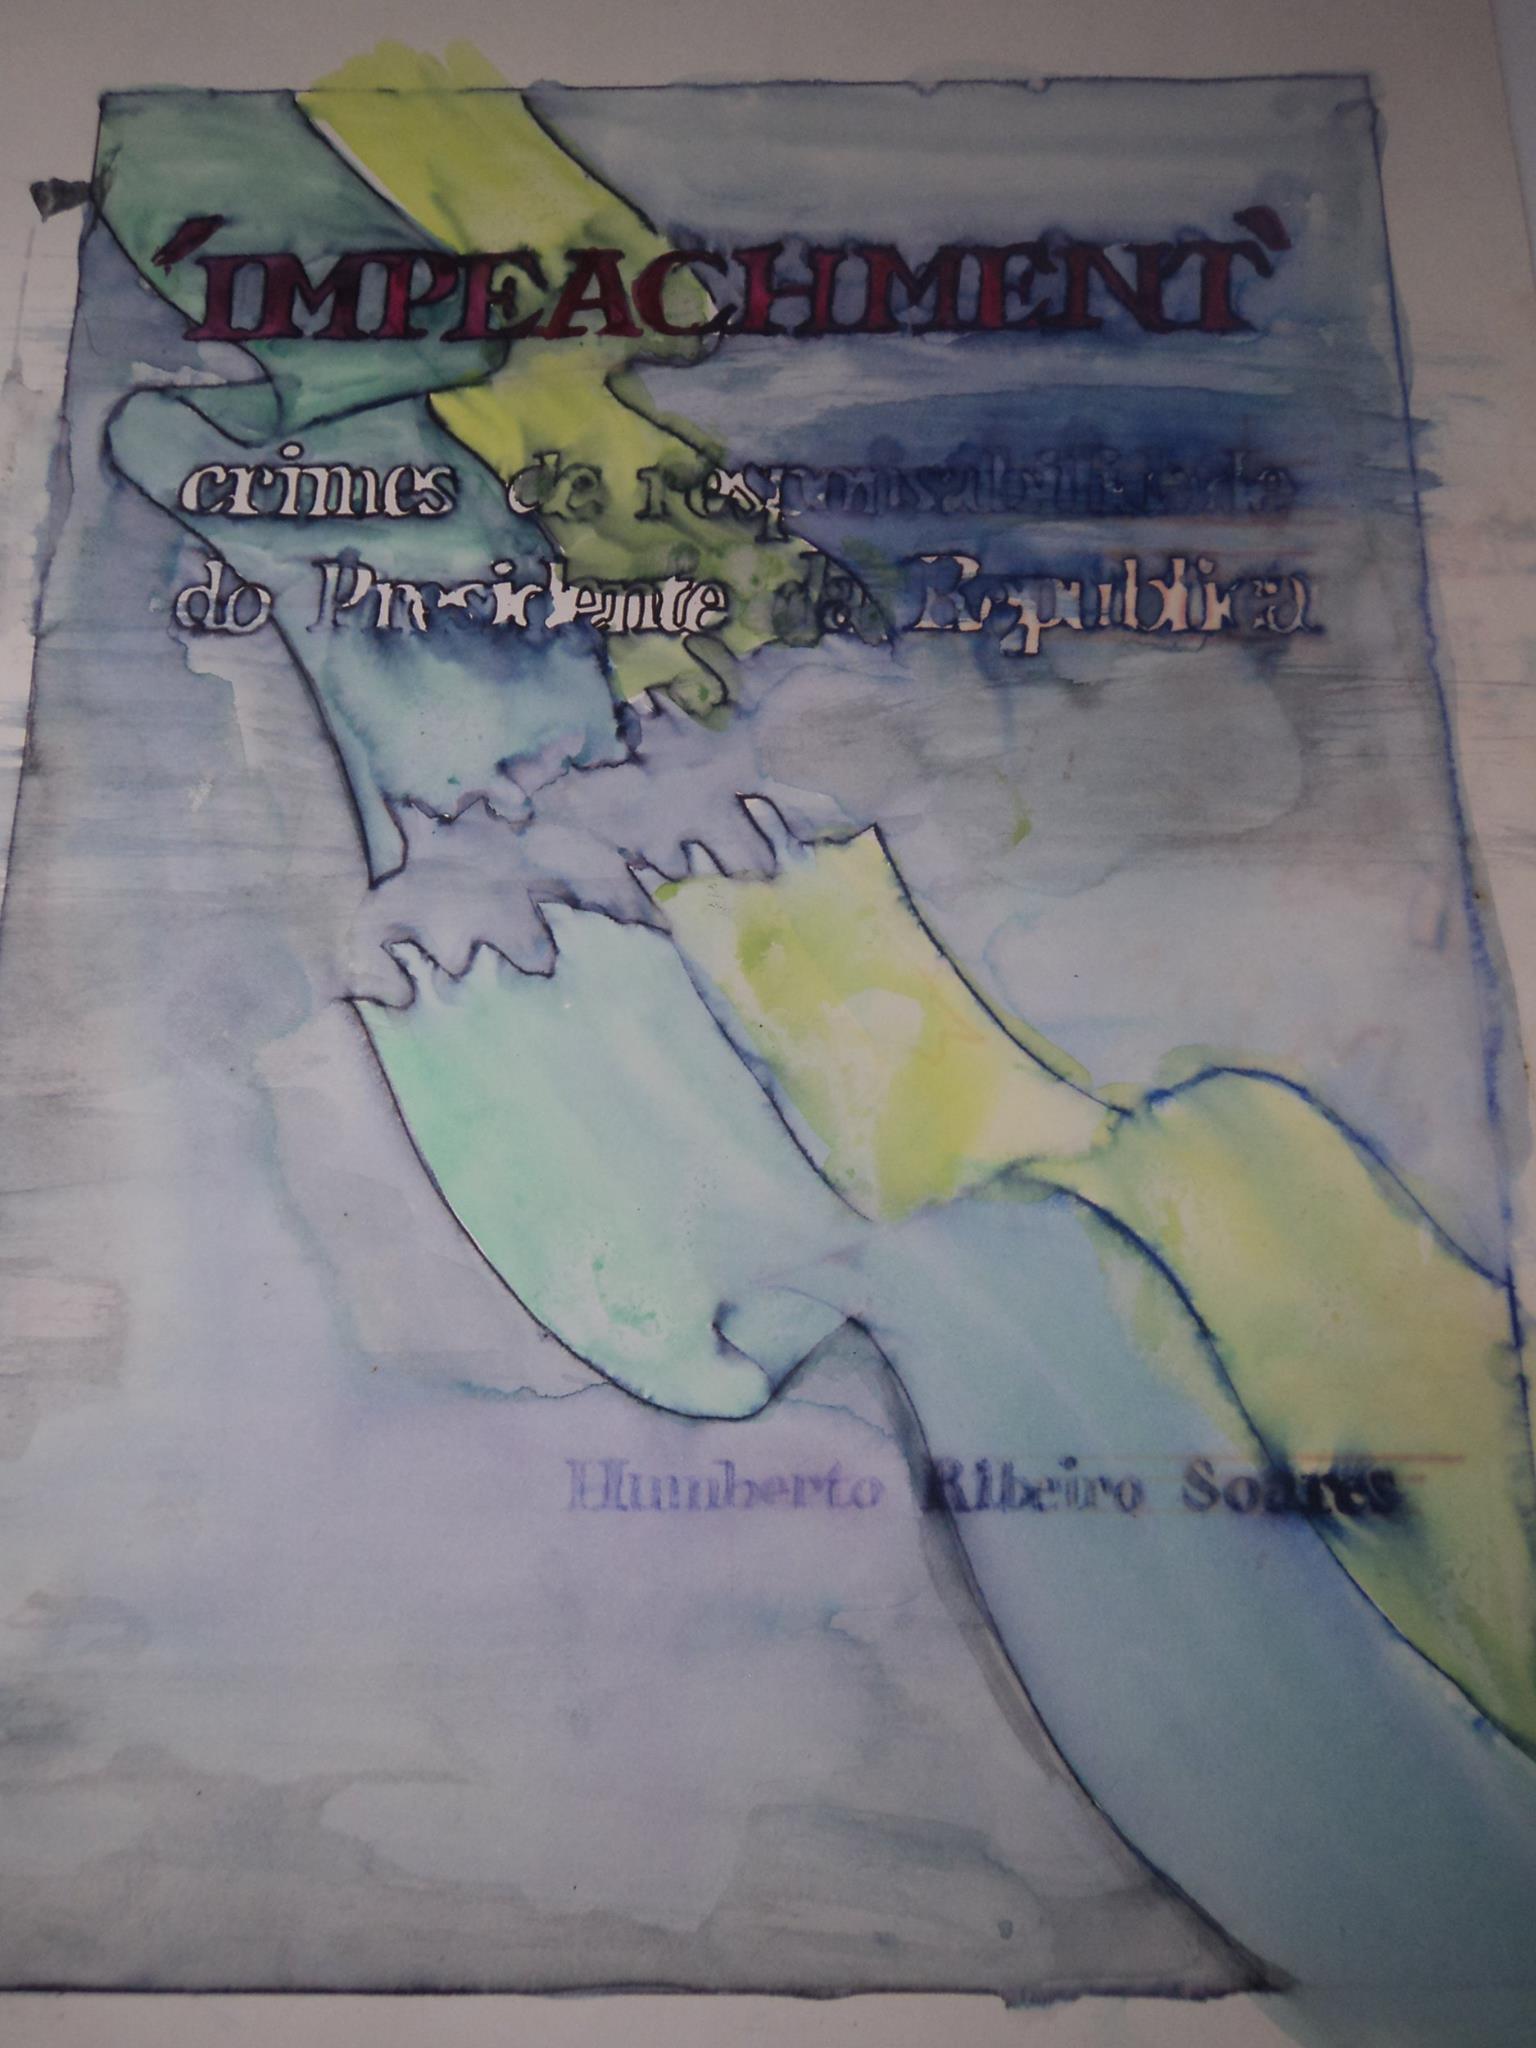 'IMPEACHMENT`
crimes de responsabilidade
do Presidente da Republica
Humberto Ribeiro Soares